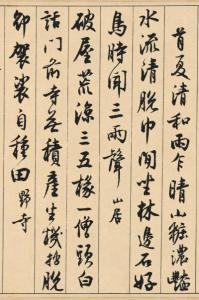 首夏清和雨乍晴山妝濃艷
水流清脫巾閒坐林邊石好
鳥時聞三兩聲 山居
破屋荒涼三五椽一僧頭白
話門前寺無積產生機拙脫
卻袈裟自種田 野寺